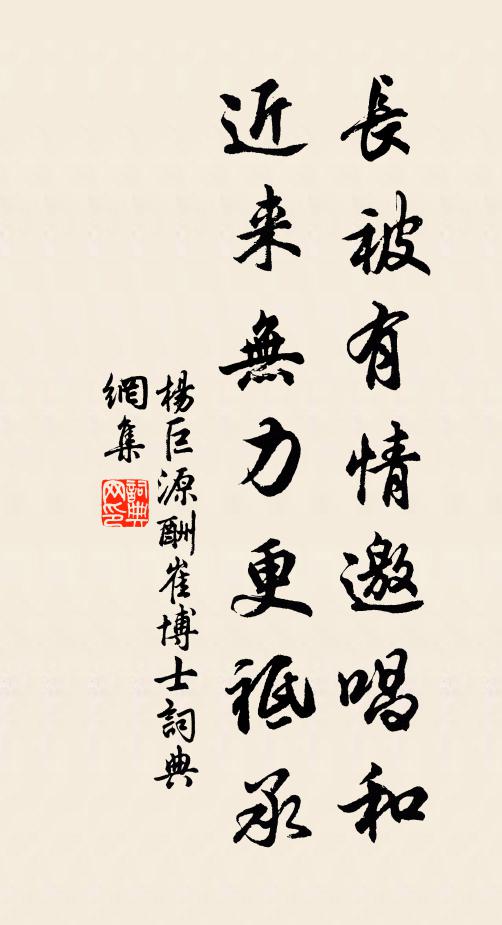 長被有情邀唱和
近来無力更祗承
楊巨源酬崔博士詞典
網集
詞典網印